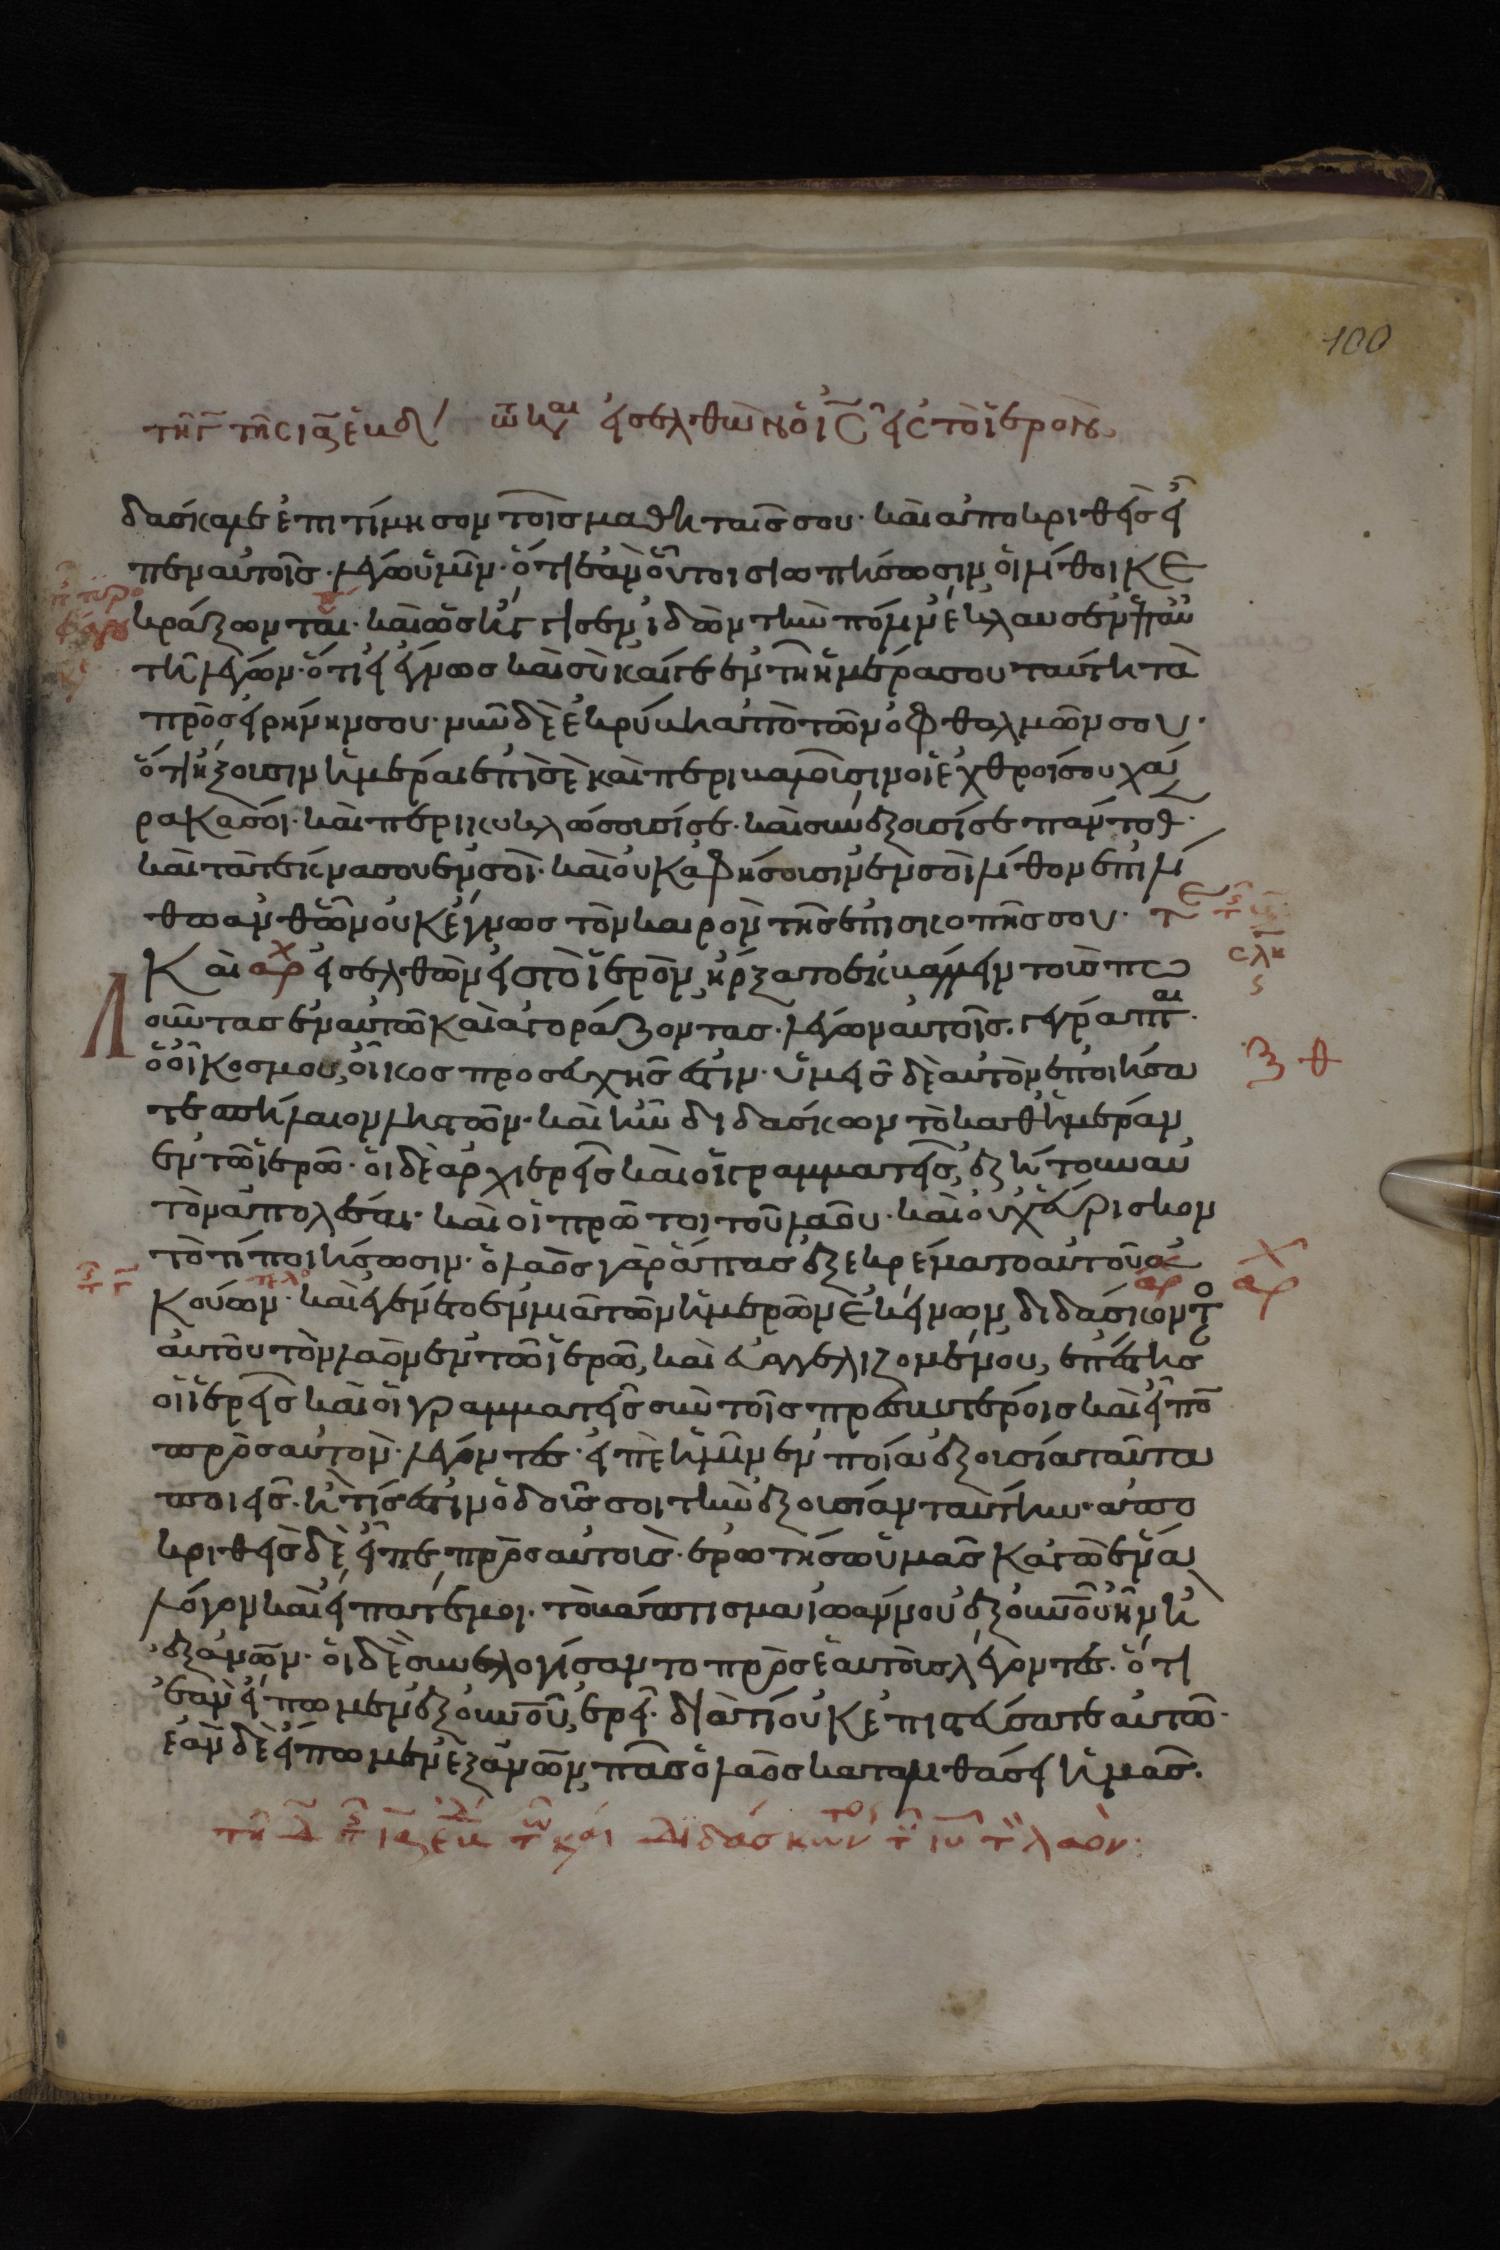 100
τῆ γ τῆς ια ἑβδ τῶ και εἰσελθὼν ὁ ις εἰς τὸ ἱερὸν
δάσκαλε ἐπιτίμησον τοῖς μαθηταῖς σου· καὶ ἀποκριθεὶς εἶ
πεν αὐτοῖς· λέγω ὑμῖν· ὅτι ἐὰν οὗτοι σιωπήσωσιν οἱ λίθοι κε
κράξονται· καὶ ὡς ἤγγισεν ἰδὼν τὴν πόλιν ἔκλαυσεν ἐπ αὐ
τῆ λέγων· ὅτι εἰ ἔγνως καὶ σὺ καί γε ἐν τῆ ἡμέρα σου ταύτη τὰ
πρὸς εἰρήνην σου· νῦν δὲ ἐκρύβη ἀπὸ τῶν ὀφθαλμῶν σου·
ὅτι ἥξουσιν ἡμέραι ἐπὶ σὲ καὶ περιβαλοῦσιν οἱ ἐχθροί σου χά
ρακά σοι· καὶ περικυκλώσουσί σε· καὶ συνέξουσί σε παντοθ
καὶ τὰ τέκνα σου ἐν σοί· καὶ οὐκ ἀφήσουσιν ἐν σοὶ λίθον ἐπὶ λί
θω ἀνθ ὧν οὐκ ἔγνως τὸν καιρὸν τῆς ἐπισκοπῆς σου· τε
σλη
Καὶ αρχ εἰσελθὼν εἰς τὸ ἱερὸν ἤρξατο ἐκβάλλειν τοὺς πω
λοῦντας ἐν αὐτῶ καὶ ἀγοράζοντας· λέγων αὐτοῖς· γέγραπται·
ὁ οἶκος μου, οἶκος προσευχῆς ἐστιν· ὑμεῖς δὲ αὐτὸν ἐποιήσα
τε σπήλαιον ληστῶν· καὶ ἦν διδάσκων τὸ καθ ἡμέραν
ἐν τῶ ἱερῶ· οἱ δὲ ἀρχιερεῖς καὶ οἱ γραμματεῖς, ἐζήτουν αὐ
τὸν ἀπολέσαι· καὶ οἱ πρῶτοι τοῦ λαοῦ· καὶ οὐχ εὕρισκον
τὸ τί ποιήσωσιν· ὁ λαὸς γὰρ ἅπας ἐξεκρέματο αὐτοῦ ἀ
κούων· καὶ ἐγένετο ἐν μιᾶ τῶν ἡμερῶν ἐκείνων, διδάσκοντο
αὐτοῦ τὸν λαὸν ἐν τῶ ἱερῶ, καὶ εὐαγγελιζομένου, ἐπέστησ
οἱ ἱερεῖς καὶ οἱ γραμματεῖς σὺν τοῖς πρεσβυτέροις καὶ εἶπο
πρὸς αὐτὸν· λέγοντες· εἰπὲ ἡμῖν ἐν ποία ἐξουσία ταῦτα
ποιεῖς· ἢ τίς ἐστιν ὁ δούς σοι τὴν ἐξουσίαν ταύτην· ἀπο
κριθεὶς δὲ εἶπε πρὸς αὐτούς· ἐρωτήσω ὑμᾶς κἀγὼ ἕνα
λόγον καὶ εἴπατέ μοι· τὸ βάπτισμα ἰωάννου ἐξ οὐνοῦ ἦν ἢ
ἐξ ἀνων· οἱ δὲ συνελογίσαντο πρὸς ἑαυτοὺς λέγοντες· ὅτι
ἐὰν εἴπωμεν ἐξ οὐνοῦ, ἐρεῖ· διατί οὐκ ἐπιστεύσατε αὐτῶ·
ἐὰν δὲ εἴπωμεν ἐξ ἀνων, πᾶς ὁ λαὸς καταλιθάσει ἡμᾶς.
τῆ δ τῆς ια ἑβδ τῶ καιρ διδάσκοντος τοῦ ιυ τὸν λαὸν: